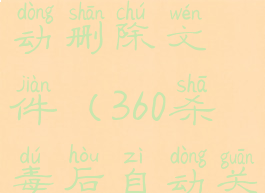 dòng shān chú wén
动 删 除 文
jiàn shā
件 （360 杀
dú hòu zì dòng guān
毒 后 自 动 关